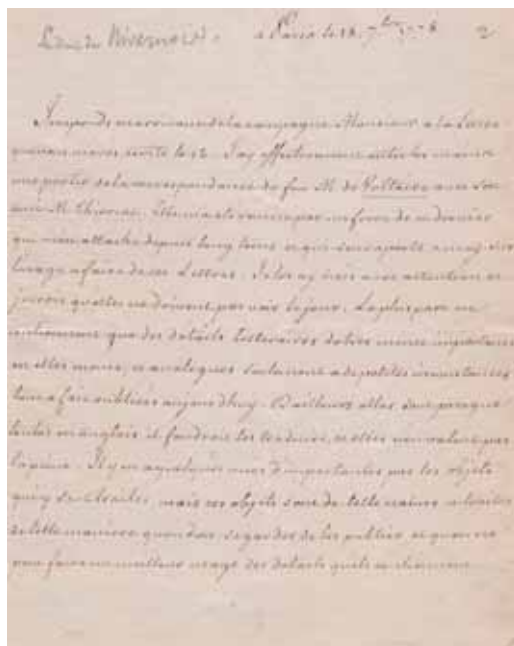 Le duc de Nivernois. à Paris le 18. 7bre 2
Je reponds en arrivant de la campagne Monsieur a la Lettre
que vous m'avez ecrite le 12. J'ay effectivement entre les mains
une partie de la correspondance de feu M. de Voltaire avec son
ami M. Thieriot. Elle m'a ete remise par un
qui m'est attaché depuis long tems et qui
a faire de ces Lettres. Je les ay lües avec attention et
qu'elles ne doivent pas voir le jour. La plus part ne
contiennent que des details Litteraires de tres mince importance
en elles memes, et analogues seulement a de petites circonstances
tout a fait oubliées aujourdhuy. D'ailleurs elles sont presque
toutes en anglois il faudroit les traduire, et elles n'en valent pas
la peine. Il y en a quelques unes d'importantes par les objets
qui y sont traités, mais ces objets sont de telle nature et traités
de telle maniere qu'on doit se garder de les publier, et qu'on ne
peut faire un meilleur usage des details qu'elles